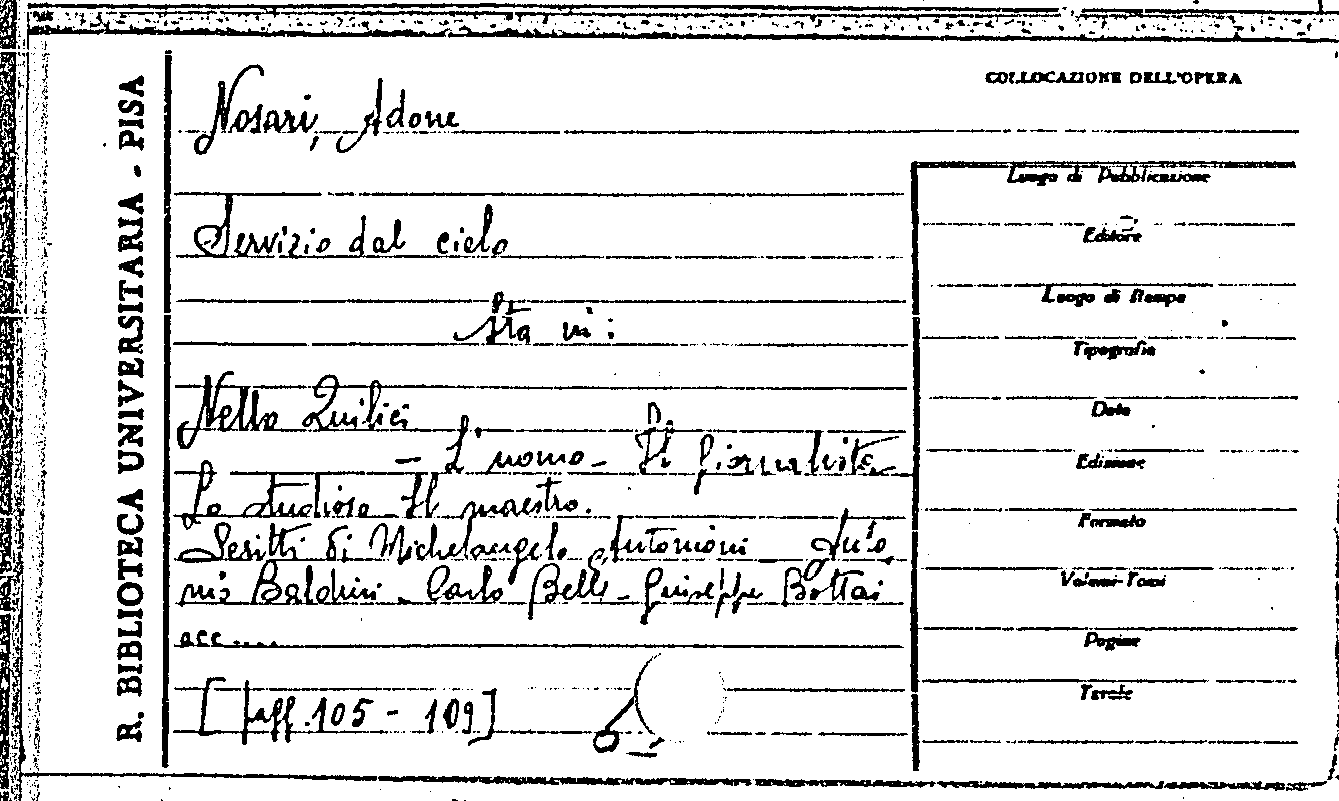 R. BIBLIOTECA UNIVERSITARIA - PISA
COLLOCAZIONE DELL'OPERA
Nosari, Adone
Servizio dal cielo
Sta in:
Nello Quilici
- L'uomo - Il giornalista
Lo studioso - Il maestro.
Scritti di Michelangelo Antonioni - Anto
nio Baldini - Carlo Belli - Giuseppe Bottai
ecc....
[pagg. 105 - 109]
Luogo di Pubblicazione
Editore
Luogo di Stampa
Tipografia
Data
Edizione
Formato
Volumi-Tomi
Pagine
Tavole